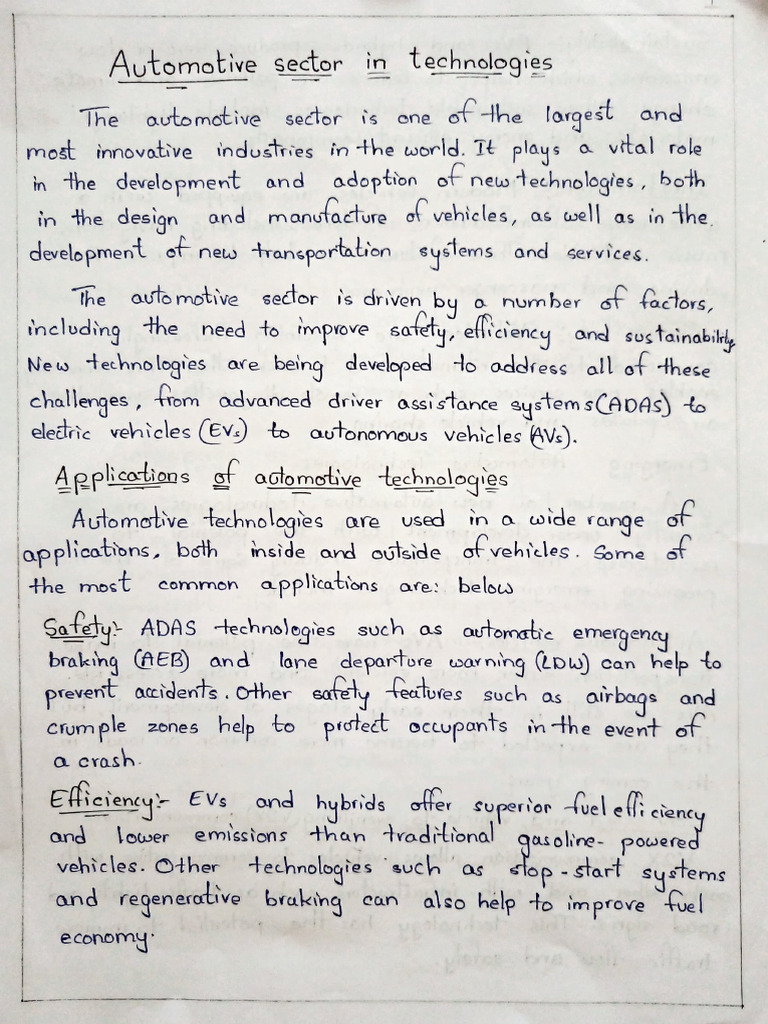 Automotive sector in technologies
The automotive sector is one of the largest and
most innovative industries in the world. It plays a vital role
in the development and adoption of new technologies, both
in the design and manufacture of vehicles, as well as in the.
development of new transportation systems and services.
The automotive sector is driven by a number of factors,
including the need to improve safety, efficiency and sustainability.
New technologies are being developed to address all of these
challenges, from advanced driver assistance systems (ADAS) to
electric vehicles (EVs) to autonomous vehicles (AVs).
Applications of automotive technologies
Automotive technologies are used in a wide range of
applications, both inside and outside of vehicles. Some of
the most common applications are: below
Safety:- ADAS technologies such as automatic emergency
braking (AEB) and lane departure warning (LDW) can help to
prevent accidents. Other safety features such as airbags and
crumple zones help to protect occupants in the event of
a crash.
Efficiency:- EVs and hybrids offer superior fuel efficiency
and lower emissions than traditional gasoline-powered
vehicles. Other technologies such as stop-start systems
and regenerative braking can also help to improve fuel
economy.